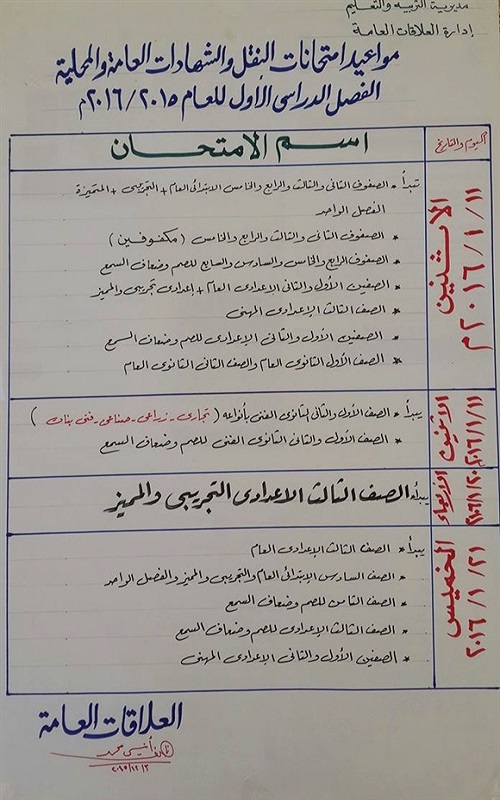 مديرية التربية والتعليم
إدارة العلاقات العامة
مواعيد امتحانات النقل والشهادات العامة والمحلية
الفصل الدراسى الأول للعام ٢٠١٥/٢٠١٦م
اليوم والتاريخ
اسم الامتحان
الاثنين ١١/١/٢٠١٦م
تبدأ * الصفوف الثانى والثالث والرابع والخامس الابتدائى العام + التجريبى + المتميزة
الفصل الواحد
* الصفوف الثانى والثالث والرابع والخامس (مكفوفين)
* الصفوف الرابع والخامس والسادس والسابع للصم وضعاف السمع
* الصفين الأول والثانى الإعدادى العام + إعدادى تجريبى والمميز
* الصف الثالث الإعدادى المهنى
* الصفين الأول والثانى الإعدادى للصم وضعاف السمع
* الصف الأول الثانوى العام والصف الثانى الثانوى العام
الاثنين ١١/١/٢٠١٦
يبدأ * الصف الأول والثانى الثانوى الفنى بأنواعه (تجارى - زراعى - صناعى - فنى بنات)
* الصف الأول والثانى الثانوى الفنى للصم وضعاف السمع
الأربعاء ٢٠/١/٢٠١٦
يبدأ الصف الثالث الاعدادى التجريبى والمميز
الخميس ٢١/١/٢٠١٦
يبدأ * الصف الثالث الإعدادى العام
* الصف السادس الابتدائى العام والتجريبى والمميز والفصل الواحد
* الصف الثامن للصم وضعاف السمع
* الصف الثالث الإعدادى للصم وضعاف السمع
* الصفين الأول والثانى الإعدادى المهنى
العلاقات العامة
٢٠١٥/١٢/٣